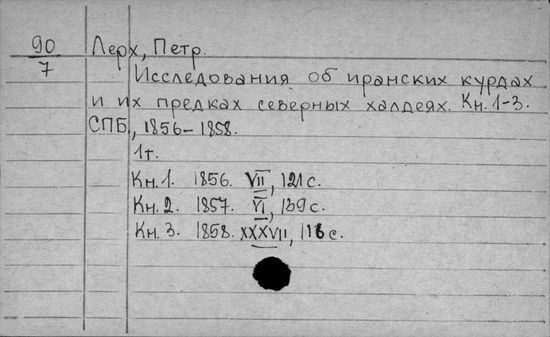 90 Лерх, Петр.
7 Исследования об иранских курдах
и их предках северных халдеях. Кн. 1-3.
СПБ., 1856-1858.
1т.
Кн. 1. 1856. VII, 121 с.
Кн. 2. 1857. VI, 139 с.
Кн. 3. 1858. XXXVII, с.